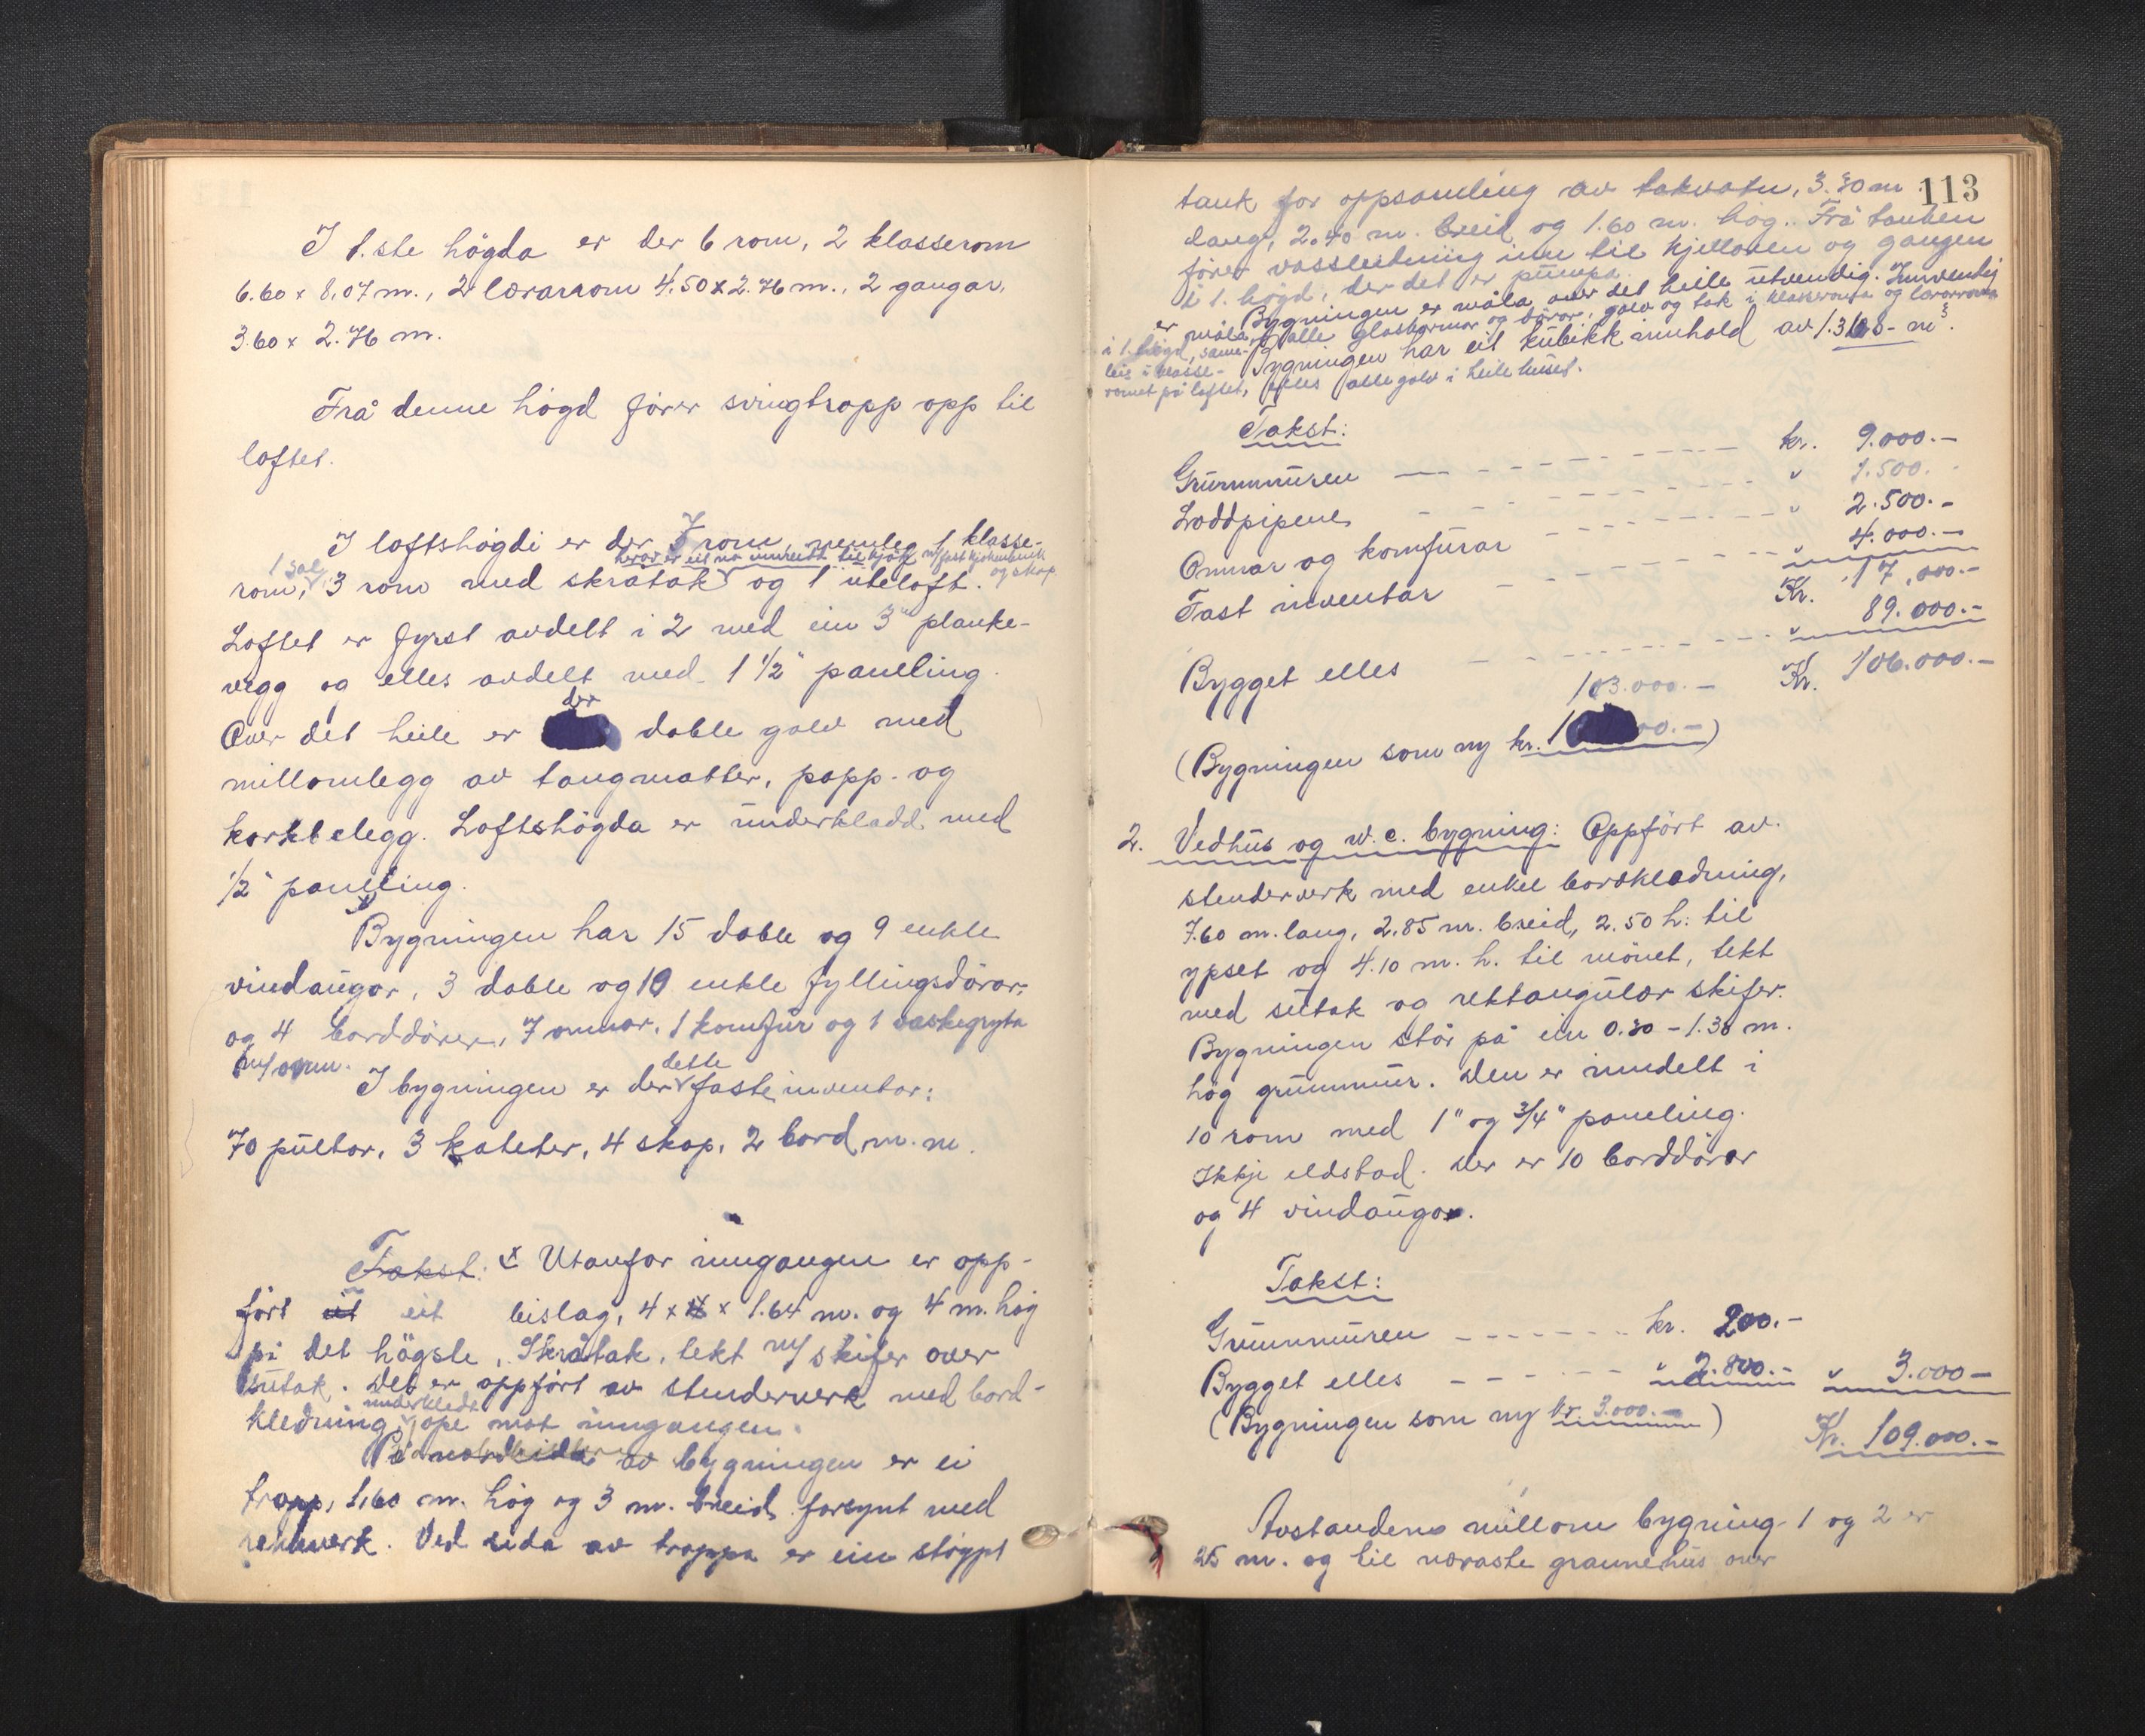 I 1.ste högda er der 6 rom, 2 klasserom
6.60 x 8.07 m., 2 lærarrom 4.50 x 2.76 m., 2 gangar,
3.60 x 2.76 m.
Frå denne högd förer svingtrapp opp til
loftet.
I loftshögdi er der 7 rom, nemleg 1 klasse-
hvorav er eit no innreidt til kjök m/fast kjökenbenk
og skap
1 sal
rom, 3 rom med skråtak og 1 uteloft.
Loftet er fyrst avdelt i 2 med ein 3" planke-
vegg og elles avdelt med 1 1/2" paneling.
der
Over det heile er doble golv med
millomlegg av tangmatter, papp- og
korkbelegg. Loftshögda er underkledd med
1/2" paneling.
Bygningen har 15 doble og 9 enkle
vindaugor, 3 doble og 10 enkle fyllingsdörar,
og 4 borddörer, 7 omnar, 1 komfür og 1 vaskegryta
m/omn.
dette
I bygningen er der faste inventar:
70 pultar, 3 kateter, 4 skap, 2 bord, m. m.
Takst: x Utanfor inngangen er opp-
fört eit eit bislag, 4 x x 1.64 m. og 4 m. hög
på det högste, Skråtak, tekt m/ skifer over
sutak. Det er oppfört av stenderverk med bord-
underkledt
kledning, ope mot inngangen.
På nordsida av bygningen er ei
tropp, 1.60 m. hög og 3 m. breid forsynt med
rekkverk. Ved sida av troppa er ein stöypt
113
tank for oppsamling av takvatn, 3.30 m
lang, 2.40 m. breid og 1.60 m. hög. Frå tanken
förer vassleidning inn til kjellaren og gangen
i 1. högd, der det er pumpa.
Bygningen er måla over det heile utvendig. Innvendig
er måla alle glaskarmar og dörar, golv og tak i klasseroma og lærarroma
i 1. högd, same-
leis i klasse-
romet på loftet, elles alle golv i heile huset.
Bygningen har eit kubikkinnhold av 1.3168- m³.
Takst:
Grunnmuren kr. 9.000.-
Loddpipene " 1.500.-
Omnar og komfurar " 2.500.-
Fast inventar " 4.000.-
Kr. 17,000.-
Bygget elles " 89.000.-
Kr. 106.000.-
103.000.-
(Bygningen som ny kr. 1 00.-)
2. Vedhus og w.c. bygning: Oppfört av
stenderverk med enkel bordkledning,
7.60 m. lang, 2.85 m. breid, 2.50 h: til
ypset og 4.10 m. h. til mönet, tekt
med sutak og rektangulær skifer.
Bygningen står på ein 0.30 - 1.30 m.
hög grunnmur. Den er inndelt i
10 rom med 1" og 3/4" paneling.
Ikkje eldstad. Der er 10 borddörar
og 4 vindaugor.
Takst:
Grunnmuren kr. 200.-
Bygget elles " 2.800.- " 3.000-
(Bygningen som ny kr. 3.000.-)
Kr. 109.000.-
Avstandene millom bygning 1 og 2 er
25 m. og til næraste grannehus over